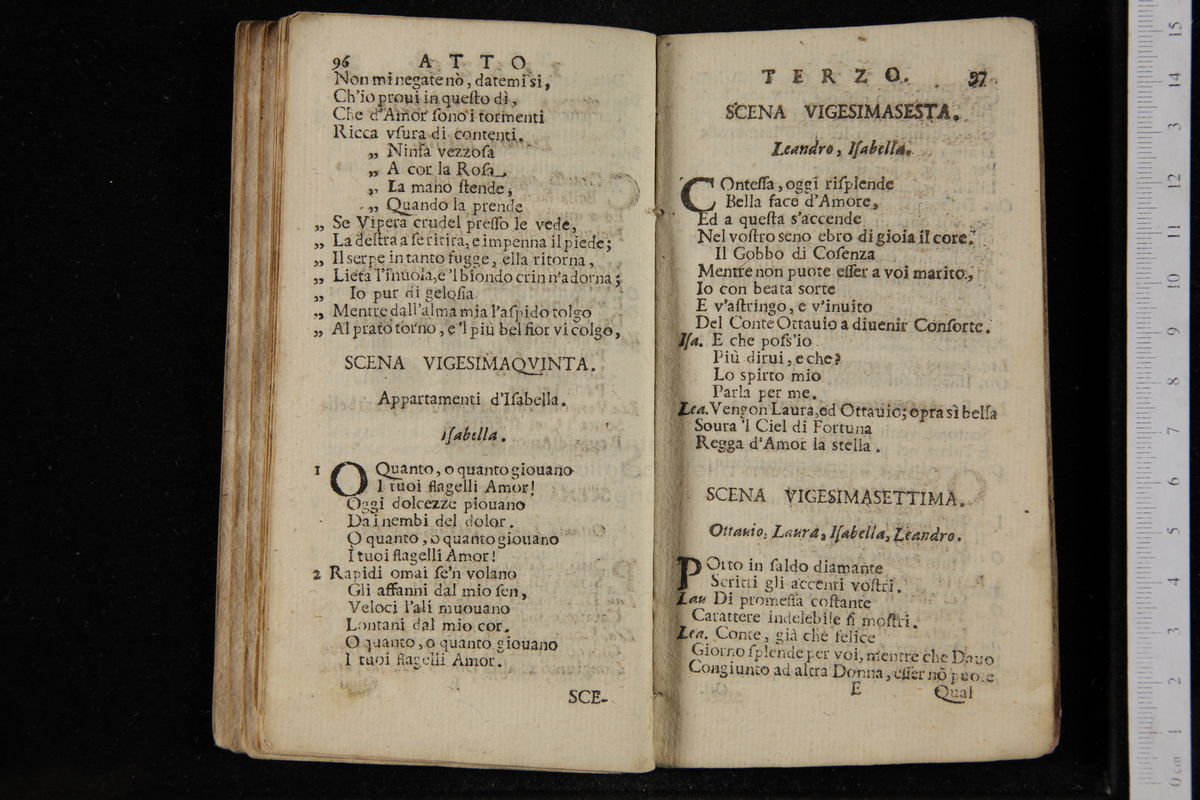 96 ATTO
Non mi negate nò, datemi sì,
Ch'io proui in queſto dì,
Che d'Amor ſono i tormenti
Ricca vſura di contenti.
„ Ninfa vezzoſa
„ A cor la Roſa
„ La mano ſtende,
„ Quando la prende
„ Se Vipera crudel preſſo le vede,
„ La deſtra a ſe ritira, e impenna il piede;
„ Il serpe in tanto fugge, ella ritorna,
„ Lieta l'inuola, e 'l biondo crin n'adorna;
„ Io pur di geloſia
„ Mentre dall'alma mia l'aſpido tolgo
„ Al prato torno, e 'l più bel fior vi colgo,
SCENA VIGESIMAQVINTA.
Appartamenti d'Iſabella.
Iſabella.
1 O Quanto, o quanto giouano
I tuoi flagelli Amor!
Oggi dolcezze piouano
Da i nembi del dolor.
O quanto, o quanto giouano
I tuoi flagelli Amor!
2 Rapidi omai ſe'n volano
Gli affanni dal mio ſen,
Veloci l'ali muouano
Lontani dal mio cor.
O quanto, o quanto giouano
I tuoi flagelli Amor.
SCE-
TERZO. 97
SCENA VIGESIMASESTA.
Leandro, Iſabella.
COnteſſa, oggi riſplende
Bella face d'Amore,
Ed a queſta s'accende
Nel voſtro seno ebro di gioia il core.
Il Gobbo di Coſenza
Mentre non puote eſſer a voi marito,
Io con beata sorte
E v'aſtringo, e v'inuito
Del Conte Ottauio a diuenir Conſorte.
Iſa. E che poſs'io
Più dirui, e che?
Lo spirto mio
Parla per me.
Lea. Vengon Laura, ed Ottauio; opra sì bella
Soura 'l Ciel di Fortuna
Regga d'Amor la stella.
SCENA VIGESIMASETTIMA.
Ottauio, Laura, Iſabella, Leandro.
POrto in ſaldo diamante
Scritti gli accenti voſtri.
Lau Di promeſſa coſtante
Carattere indelebile ſi moſtri.
Lea. Conte, già che felice
Giorno ſplende per voi, mentre che Dauo
Congiunto ad altra Donna, eſſer nō puote
E Qual
15
14
13
12
11
10
9
8
7
6
5
4
3
2
1
0 cm